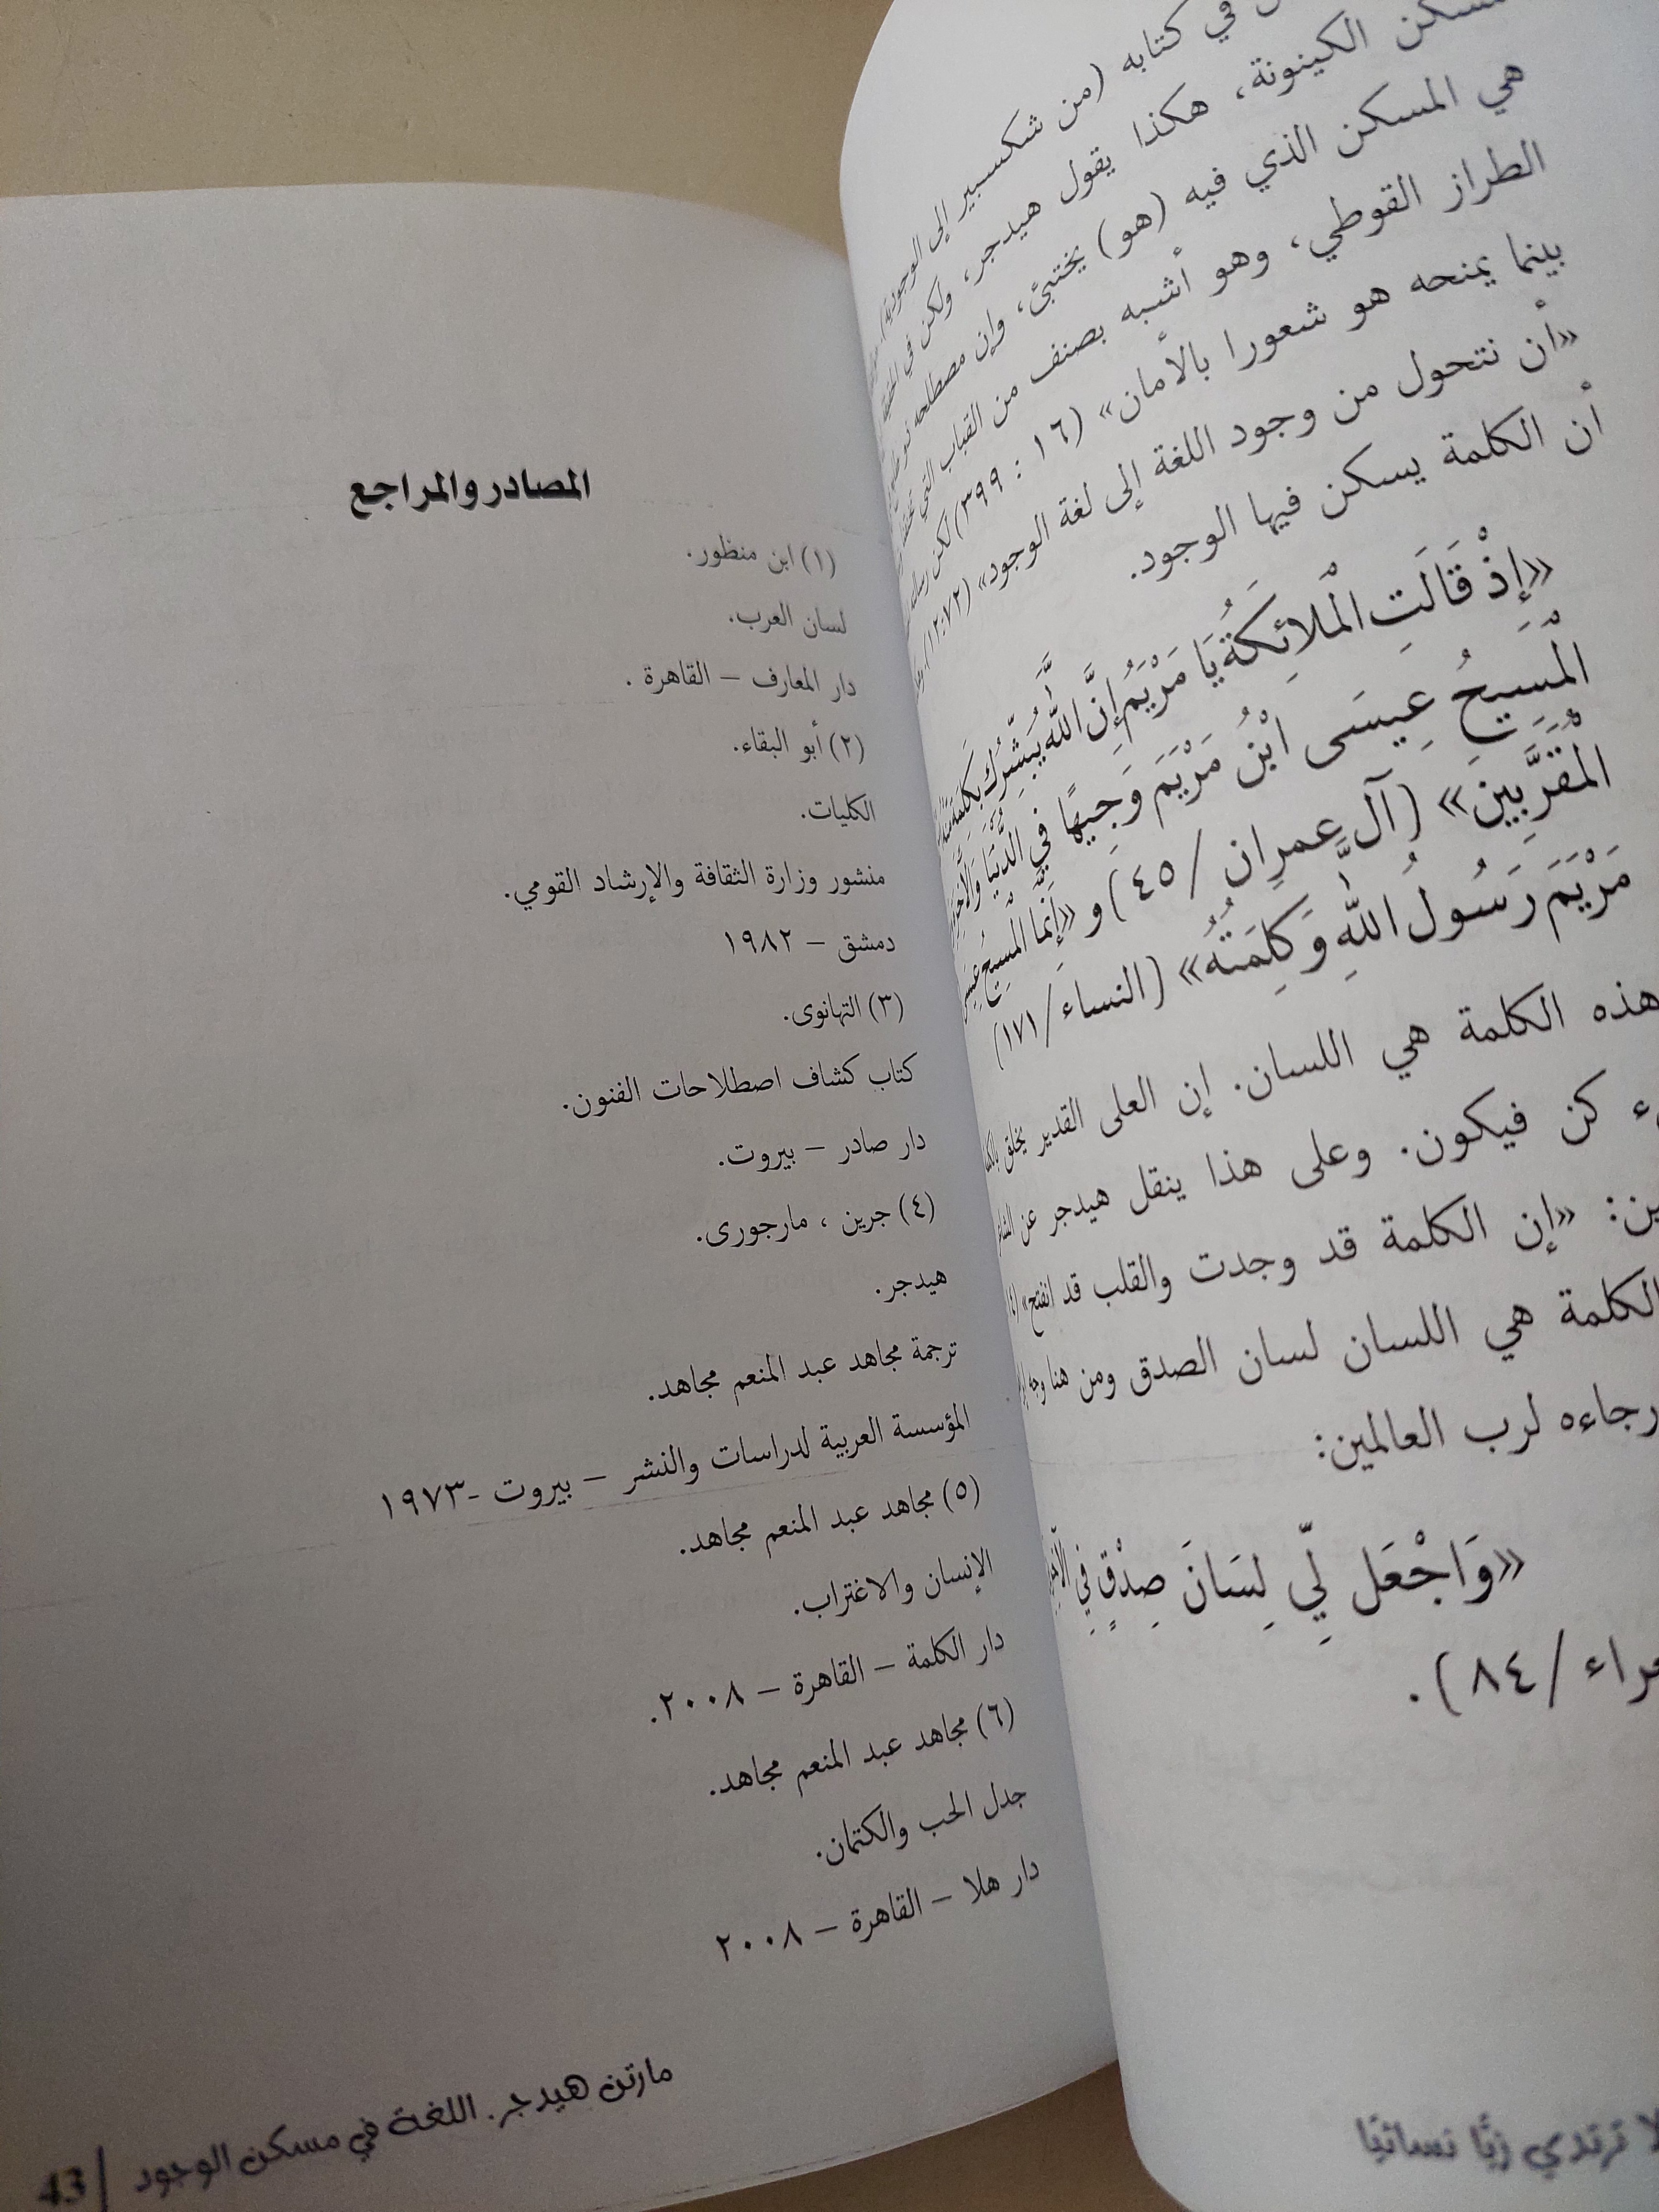 في كتابه (من شكسبير إلى الوجودية)
مسكن الكينونة، هكذا يقول هيدجر، ولكن في
هي المسكن الذي فيه (هو) يختبئ، وإن مصطلحه
الطراز القوطي، وهو أشبه بصنف من القباب التي
بينما يمنحه هو شعورا بالأمان» (١٦ : ٣٩٩) لكن
«أن نتحول من وجود اللغة إلى لغة الوجود» (١٢:٧٢)
أن الكلمة يسكن فيها الوجود.
«إِذْ قَالَتِ الْمَلائِكَةُ يَا مَرْيَمُ إِنَّ اللَّهَ يُبَشِّرُكِ بِكَلِمَةٍ
الْمَسِيحُ عِيسَى ابْنُ مَرْيَمَ وَجِيهًا فِي الدُّنْيَا وَالْآخِرَةِ
الْمُقَرَّبِينَ» (آل عمران /٤٥) و «إِنَّمَا الْمَسِيحُ عِيسَى
مَرْيَمَ رَسُولُ اللَّهِ وَكَلِمَتُهُ» (النساء/١٧١)
هذه الكلمة هي اللسان. إن العلى القدير يخلق
كن فيكون. وعلى هذا ينقل هيدجر عن
«إن الكلمة قد وجدت والقلب قد انفتح»
الكلمة هي اللسان لسان الصدق ومن هنا وجه
رجاءه لرب العالمين:
«وَاجْعَل لِّي لِسَانَ صِدْقٍ فِي
/٨٤).
لا ترتدي زيًّا نسائيًا
المصادر والمراجع
(١) ابن منظور.
لسان العرب.
دار المعارف – القاهرة .
(٢) أبو البقاء.
الكليات.
منشور وزارة الثقافة والإرشاد القومي.
دمشق – ١٩٨٢
(٣) التهانوى.
كتاب كشاف اصطلاحات الفنون.
دار صادر – بيروت.
(٤) جرين ، مارجورى.
هيدجر.
ترجمة مجاهد عبد المنعم مجاهد.
المؤسسة العربية لدراسات والنشر – بيروت -١٩٧٣
(٥) مجاهد عبد المنعم مجاهد.
الإنسان والاغتراب.
دار الكلمة – القاهرة – ٢٠٠٨.
(٦) مجاهد عبد المنعم مجاهد.
جدل الحب والكتمان.
دار هلا – القاهرة – ٢٠٠٨
مارتن هيدجر. اللغة في مسكن الوجود | 43